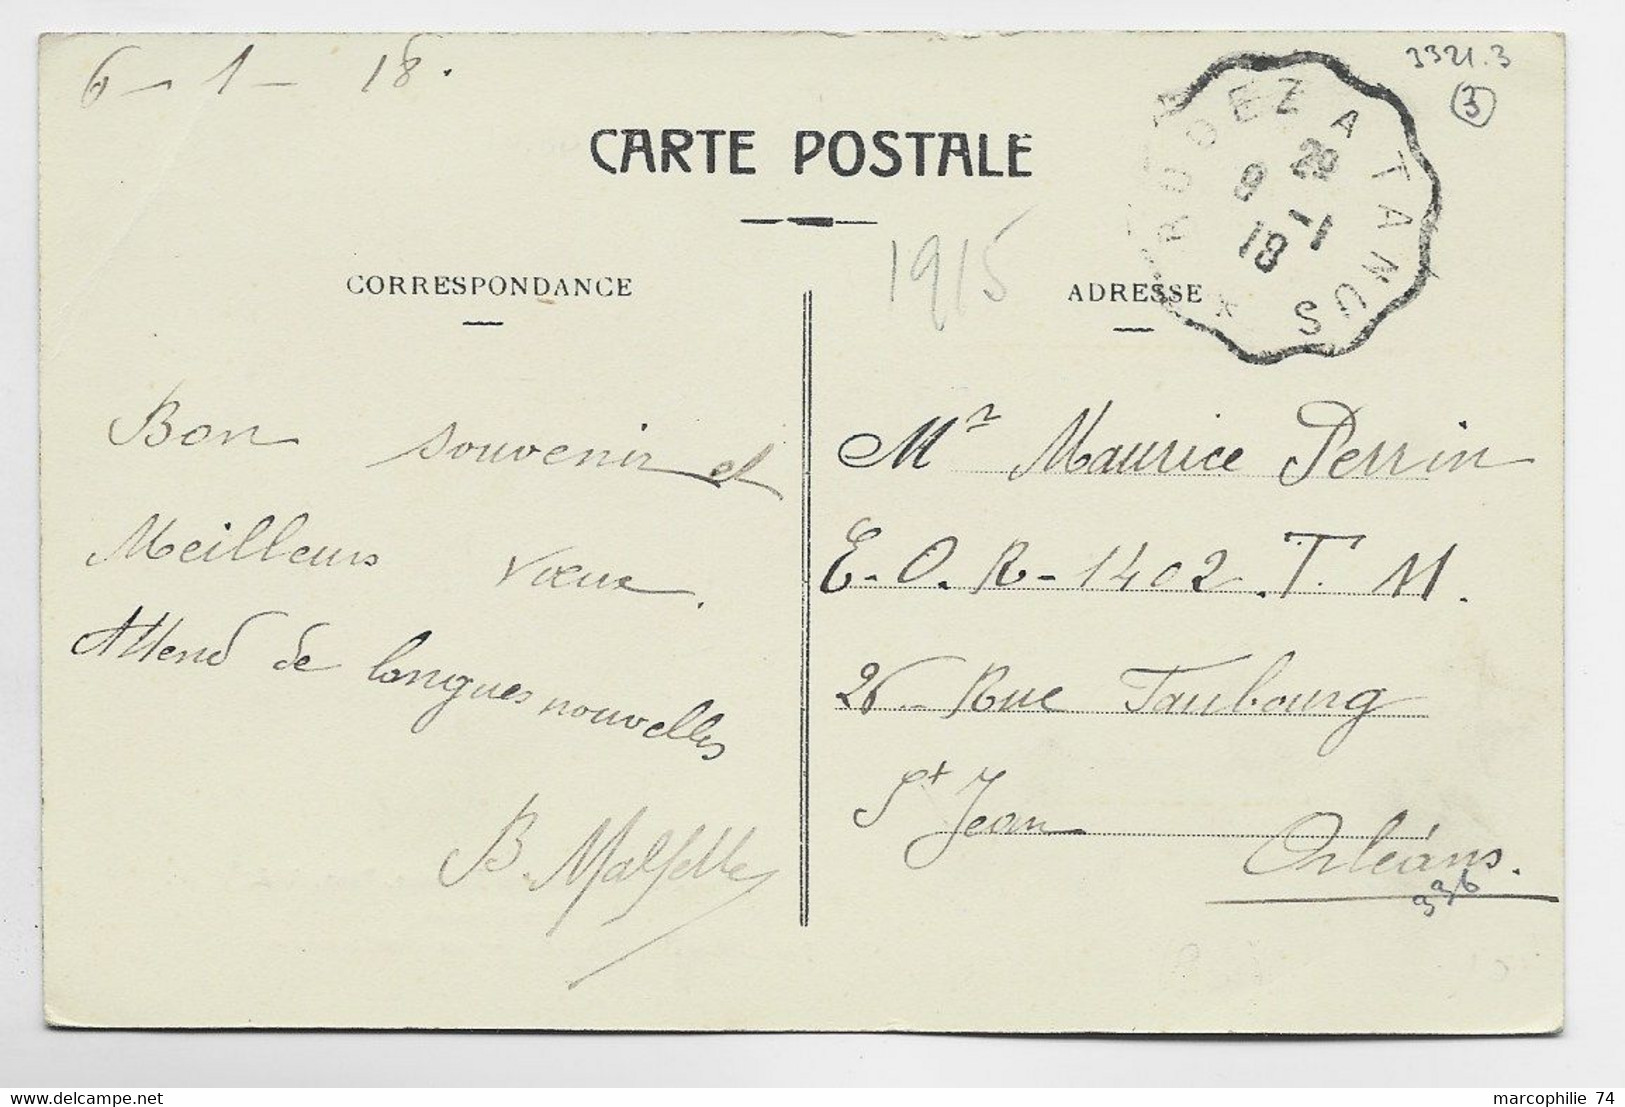 6-1-18.
3321.3
3
CARTE POSTALE
RODEZ A TANUS
9 20
-1
18
*
1915
CORRESPONDANCE
ADRESSE
Bon souvenir et
Meilleurs vœux.
Attend de longues nouvelles
B. Malfette
Mr Maurice Perrin
E.O.R-1402.T.M.
26-Rue Faubourg
St Jean
Orléans.
996
marcophilie 74